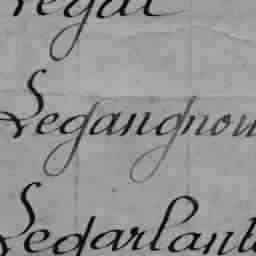 Legal
Legangnou
Legarlant